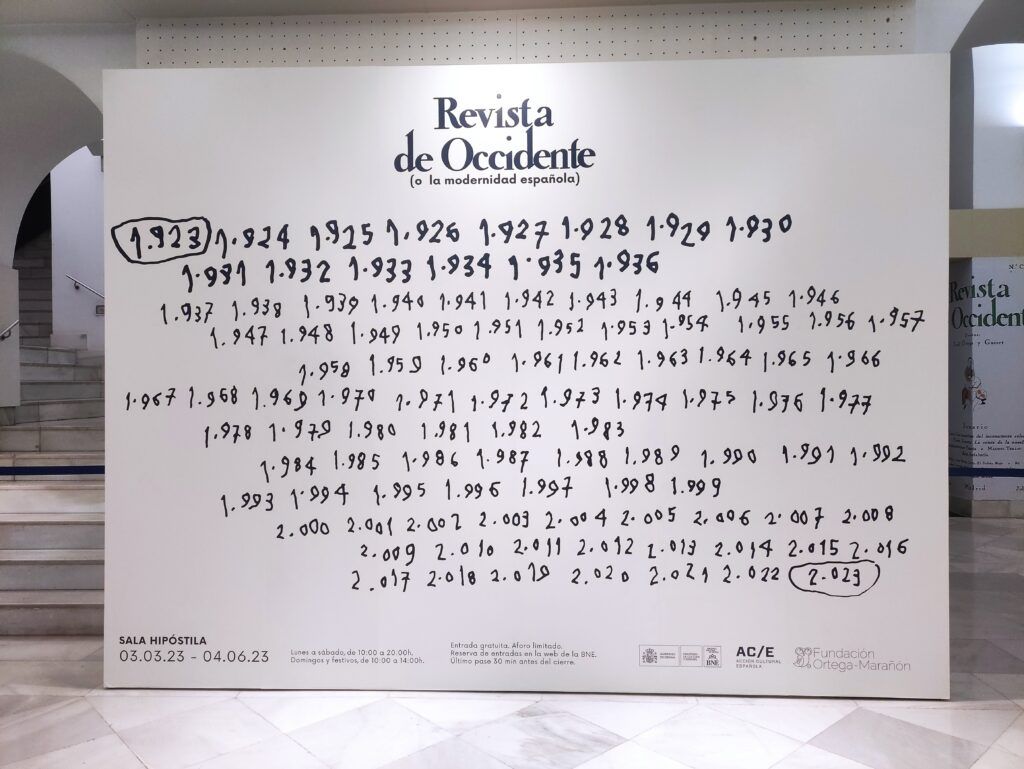 Revista
de Occidente
(o la modernidad española)
1.923 1.924 1.925 1.926 1.927 1.928 1.929 1.930
1.931 1.932 1.933 1.934 1.935 1.936
1.937 1.938 1.939 1.940 1.941 1.942 1.943 1.944 1.945 1.946
1.947 1.948 1.949 1.950 1.951 1.952 1.953 1.954 1.955 1.956 1.957
1.958 1.959 1.960 1.961 1.962 1.963 1.964 1.965 1.966
1.967 1.968 1.969 1.970 1.971 1.972 1.973 1.974 1.975 1.976 1.977
1.978 1.979 1.980 1.981 1.982 1.983
1.984 1.985 1.986 1.987 1.988 1.989 1.990 1.991 1.992
1.993 1.994 1.995 1.996 1.997 1.998 1.999
2.000 2.001 2.002 2.003 2.004 2.005 2.006 2.007 2.008
2.009 2.010 2.011 2.012 2.013 2.014 2.015 2.016
2.017 2.018 2.019 2.020 2.021 2.022 2.023
SALA HIPÓSTILA
03.03.23 - 04.06.23
Lunes a sábado, de 10:00 a 20:00h.
Domingos y festivos, de 10:00 a 14:00h.
Entrada gratuita. Aforo limitado.
Reserva de entradas en la web de la BNE.
Último pase 30 min antes del cierre.
BNE
AC/E
ACCIÓN CULTURAL
ESPAÑOLA
Fundación
Ortega-Marañón
Revista
Occident